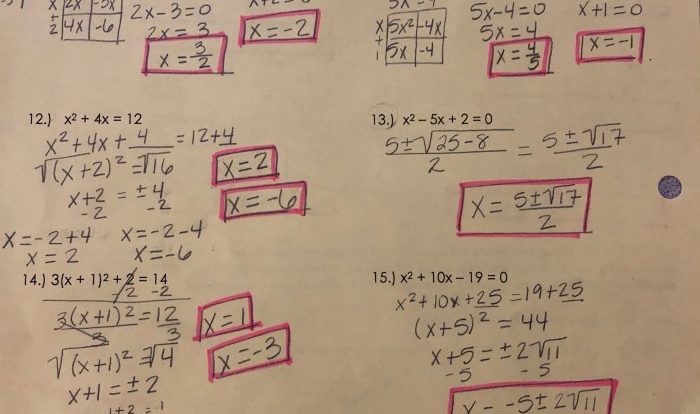 x 2x -3x
+
2 4x -6
2x-3=0
2x = 3
x = 3/2
x+2=0
x=-2
5x -4
x 5x² -4x
+
1 5x -4
5x-4=0
5x=4
x = 4/5
x+1=0
x=-1
12.) x² + 4x = 12
x²+4x+4 = 12+4
√(x+2)² = √16
x+2 = ±4
-2 -2
x=-2+4 x=-2-4
x = 2 x=-6
x=2
x=-6
13.) x² – 5x + 2 = 0
5±√25-8 / 2 = 5±√17 / 2
x = 5±√17 / 2
14.) 3(x + 1)² + 2 = 14
-2 -2
3(x+1)² = 12
3 3
√(x+1)² = √4
x+1 = ±2
x=1
x=-3
15.) x² + 10x – 19 = 0
x²+10x+25 = 19+25
(x+5)² = 44
x+5 = ±2√11
-5 -5
x = -5±2√11